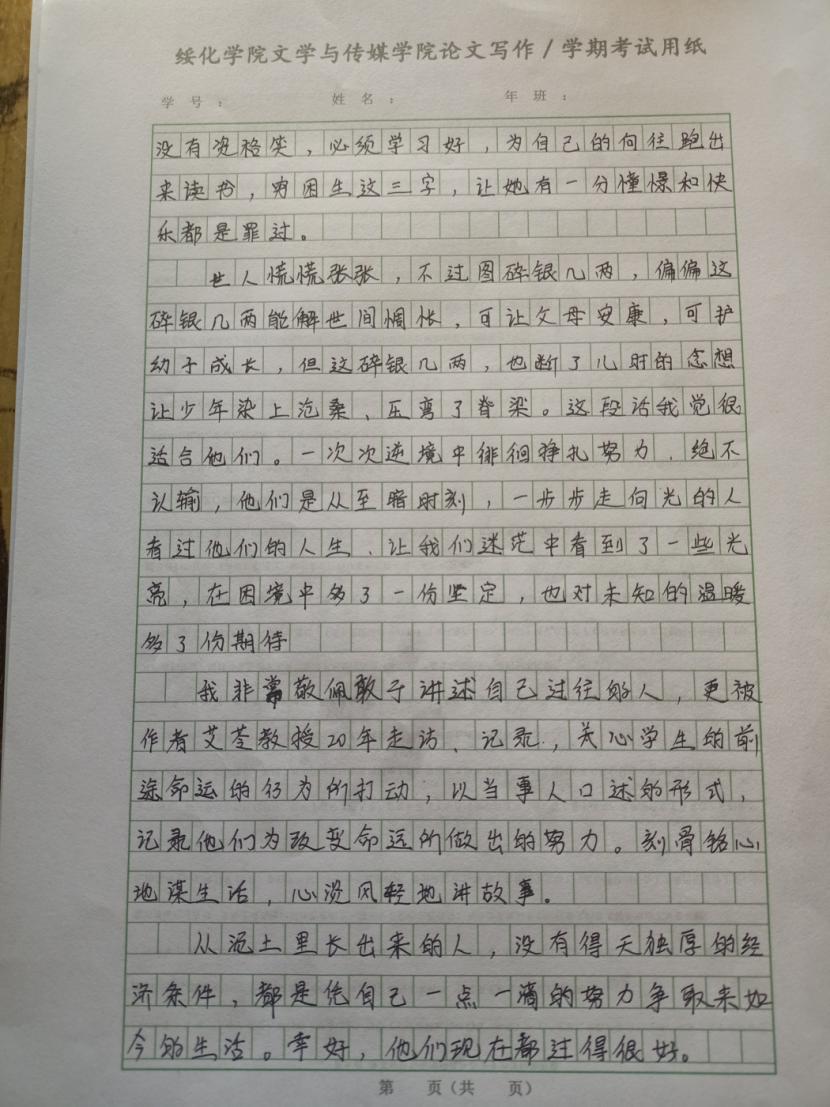 绥化学院文学与传媒学院论文写作/学期考试用纸
学号： 姓名： 年班：
没有资格笑，必须学习好，为自己的向往跑出
来读书，穷困生这三字，让她有一分憧憬和快
乐都是罪过。
世人慌慌张张，不过图碎银几两，偏偏这
碎银几两能解世间惆怅，可让父母安康，可护
幼子成长，但这碎银几两，也断了儿时的念想
让少年染上沧桑、压弯了脊梁。这段话我觉很
适合他们。一次次逆境中徘徊挣扎努力，绝不
认输，他们是从至暗时刻，一步步走向光的人
看过他们的人生、让我们迷茫中看到了一些光
亮，在困境中多了一份坚定，也对未知的温暖
多了份期待
我非常敬佩敢于讲述自己过往的人，更被
作者艾苓教授20年走访、记录，关心学生的前
途命运的行为所打动，以当事人口述的形式，
记录他们为改变命运所做出的努力。刻骨铭心
地谋生活，心淡风轻地讲故事。
从泥土里长出来的人，没有得天独厚的经
济条件，都是凭自己一点一滴的努力争取来如
今的生活。幸好，他们现在都过得很好。
第 页(共 页)